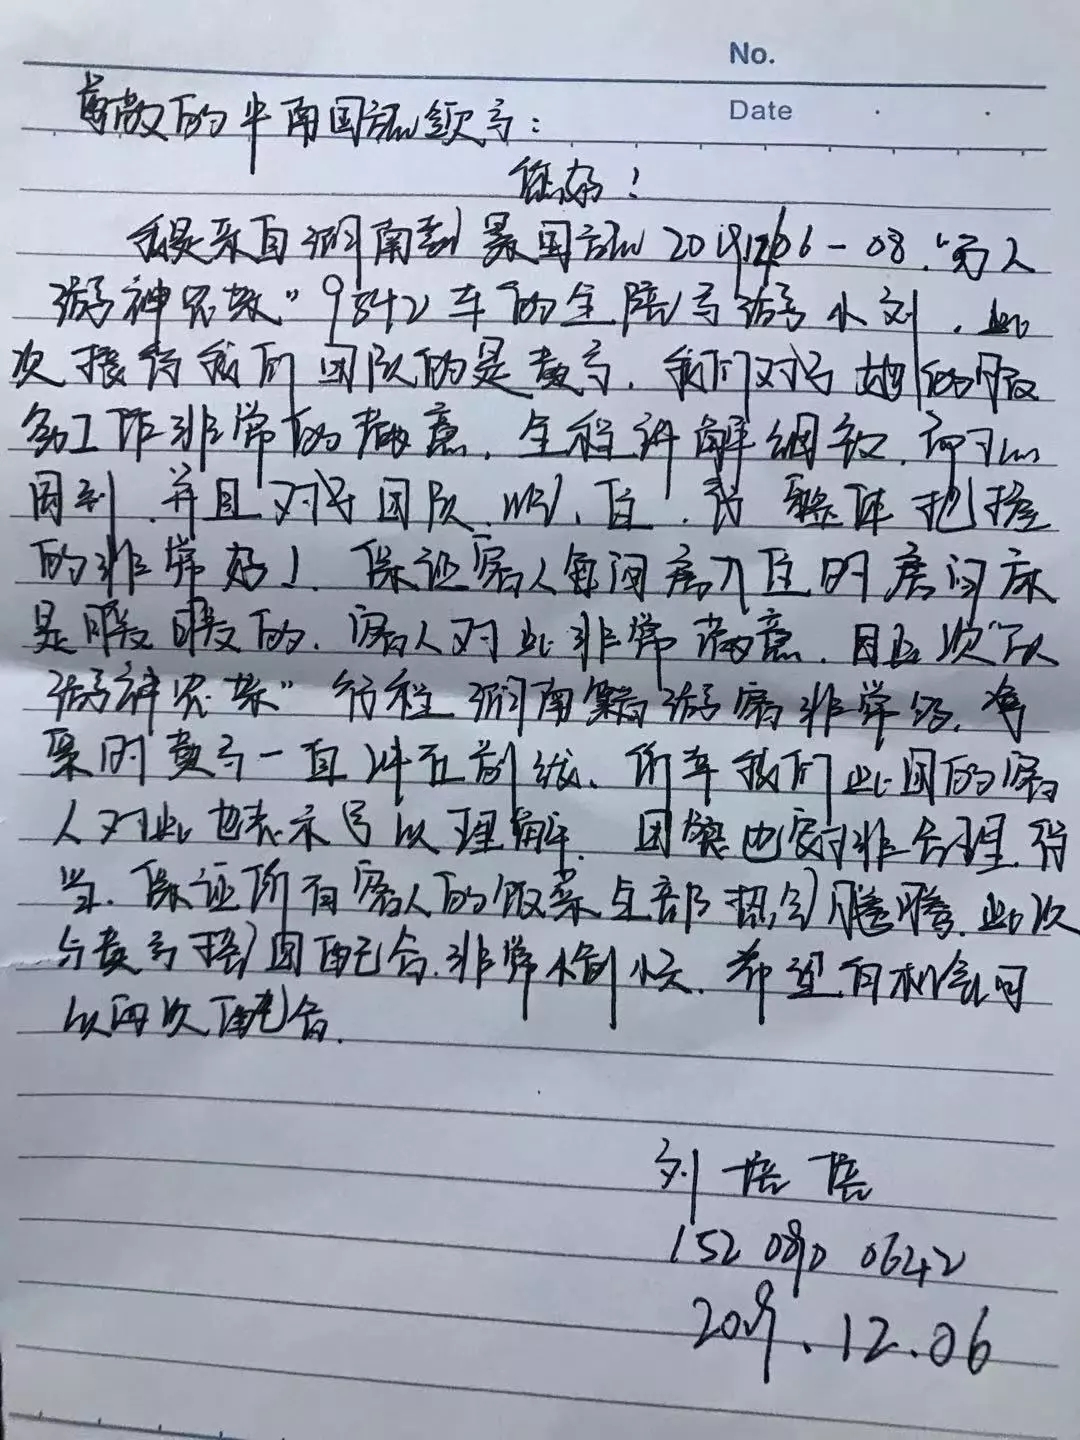 No.
Date
尊敬的中南国旅领导:
您好!
我是来自湖南 国旅20191206-08."万人
游神农架"9842车的全陪导游小刘.此
次接待我们团队的是黄导.我们对于她的服
务工作非常的满意.全程讲解细致.耐心
周到.并且对于团队.吃.住.行 整体把握
的非常好!保证客人每间房入住时房间床
是暖暖的.客人对此非常满意.因此次"万人
游神农架"行程湖南籍游客非常多.
黄导一直冲在前线.所幸我们此团的客
人对此也表示予以理解.团餐也安排合理.得
当.保证所有客人的饭菜全部热气腾腾.此次
与黄导接团配合.非常愉快.希望有机会可
以再次配合.
刘培培
152 0890 0642
2019.12.06